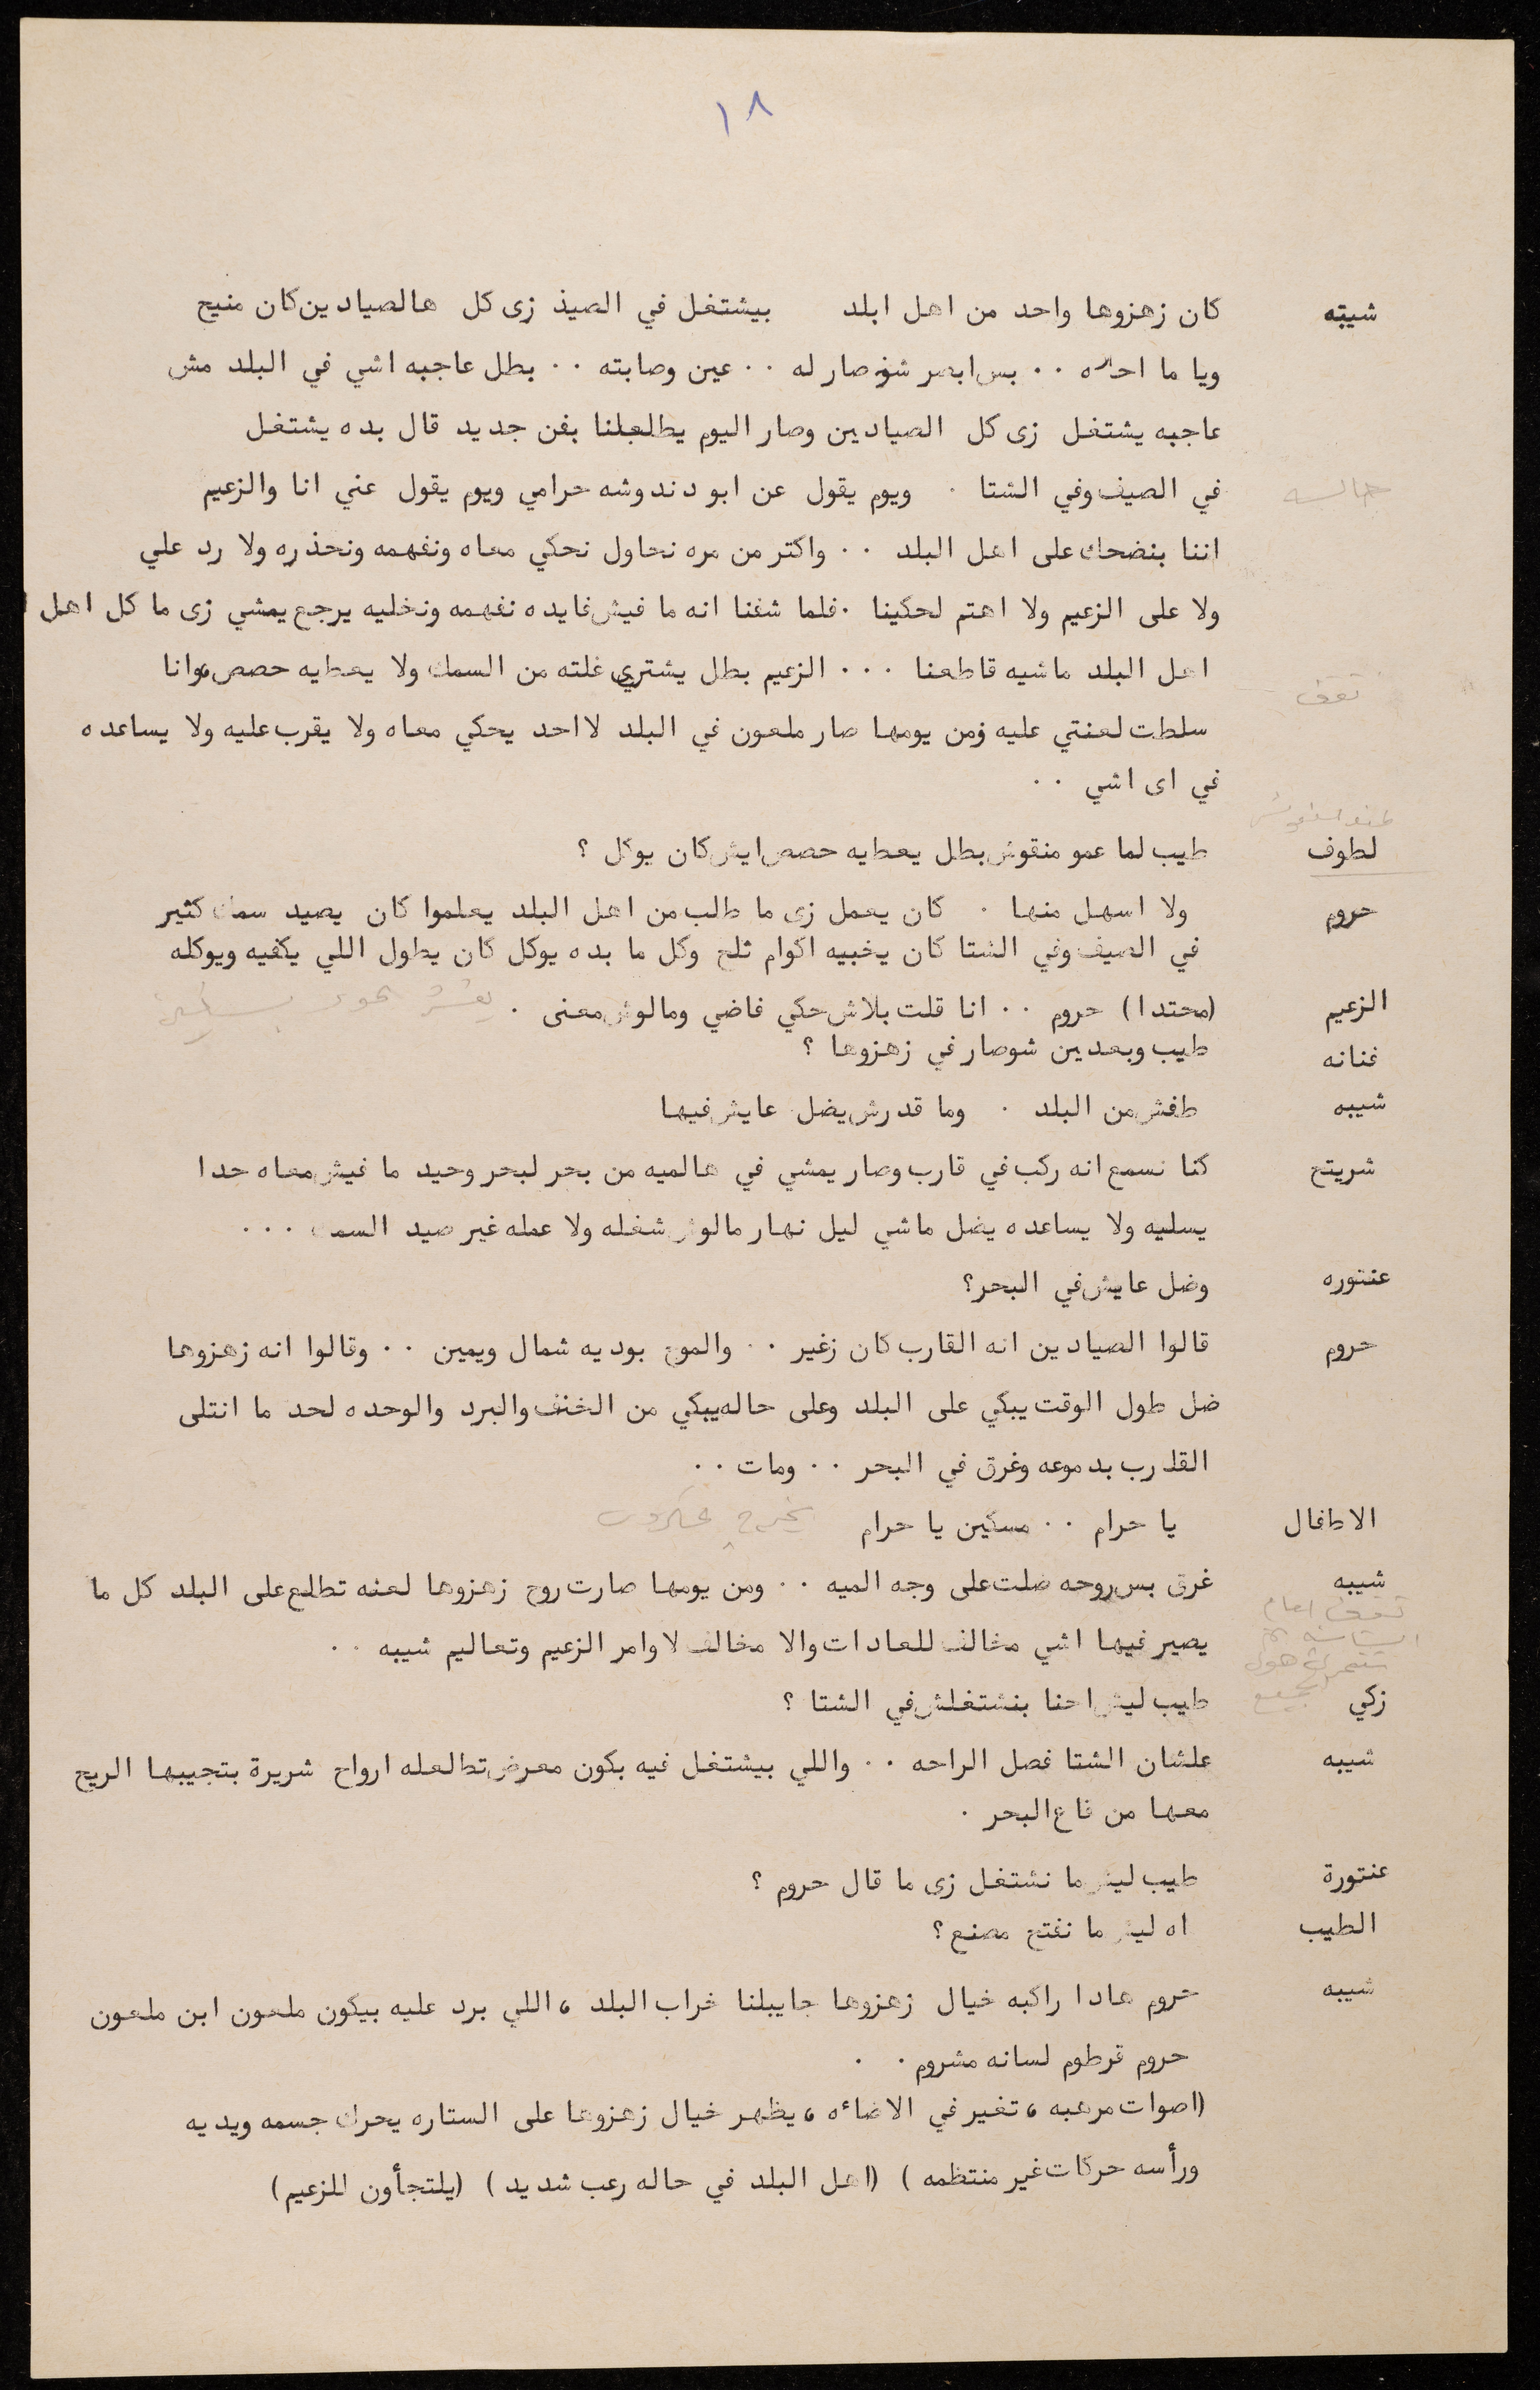 ١٨
شيبه كان زهزوها واحد من اهل ابلد بيشتغل في الصيذ زى كل هالصيادين كان منيح
ويا ما احلاه ٠٠ بس ابصر شو صار له ٠٠ عين وصابته ٠٠ بطل عاجبه اشي في البلد مش
عاجبه يشتغل زى كل الصيادين وصار اليوم يطلعلنا بفن جديد قال بده يشتغل
في الصيف وفي الشتا ٠ ويوم يقول عن ابو دندوشه حرامي ويوم يقول عني انا والزعيم
جالسه
اننا بنضحك على اهل البلد ٠٠ واكتر من مره نحاول نحكي معاه ونفهمه ونحذره ولا رد علي
ولا على الزعيم ولا اهتم لحكينا ٠ فلما شفنا انه ما فيش فايده نفهمه ونخليه يرجع يمشي زى ما كل اهل ا
اهل البلد ماشيه قاطعنا ٠٠٠ الزعيم بطل يشترى غلته من السمك ولا يعطيه حصص وانا
تقف
سلطت لعنتي عليه ومن يومها صار ملعون في البلد لا احد يحكي معاه ولا يقرب عليه ولا يساعده
في اى اشي ٠٠
لطوف طيب لما عمو منقوش بطل يعطيه حصص ايش كان يوكل ؟
حروم ولا اسهل منها ٠ كان يعمل زى ما طالب من اهل البلد يعلموا كان يصيد سمك كثير
في الصيف وفي الشتا كان يخبيه اكوام ثلج وكل ما بده يوكل كان يطول اللي يكفيه ويوكله
الزعيم (محتدا) حروم ٠٠ انا قلت بلاش حكي فاضي ومالوش معنى ٠
فنانه طيب وبعدين شو صار في زهزوها ؟
شيبه طفش من البلد ٠ وما قدرش يضل عايش فيها
شريتح كنا نسمع انه ركب في قارب وصار يمشي في هالميه من بحر لبحر وحيد ما فيش معاه حدا
يسليه ولا يساعده يضل ماشي ليل نهار مالوش شغله ولا عمله غير صيد السمك ٠٠٠
عنتوره وضل عايش في البحر؟
حروم قالوا الصيادين انه القارب كان زغير ٠٠ والموج بوديه شمال ويمين ٠٠ وقالوا انه زهزوها
ضل طول الوقت يبكي على البلد وعلى حاله يبكي من الخنف والبرد والوحده لحد ما انتلى
القارب بدموعه وغرق في البحر ٠٠ ومات ٠٠
الاطفال يا حرام ٠٠ مسكين يا حرام
شيبه غرق بس روحه ضلت على وجه الميه ٠٠ ومن يومها صارت روح زهزوها لعنه تطلع على البلد كل ما
تقف امام
يصير فيها اشي مخالف للعادات والا مخالف لاوامر الزعيم وتعاليم شيبه ٠٠
زكي طيب ليش احنا بنشتغلش في الشتا ؟
شيبه علشان الشتا فصل الراحه ٠٠ واللي بيشتغل فيه بكون معرض تطالعله ارواح شريرة بتجيبها الريح
معها من قاع البحر ٠
عنتورة طيب ليش ما نشتغل زى ما قال حروم ؟
الطيب اه ليش ما نفتح مصنع ؟
شيبه حروم هادا راكبه خيال زهزوها جايبلنا خراب البلد ، اللي برد عليه بيكون ملعون ابن ملعون
حروم قرطوم لسانه مشروم ٠ ٠
(اصوات مرعبه ، تغير في الاضاءه ، يظهر خيال زهزوها على الستاره يحرك جسمه ويديه
ورأسه حركات غير منتظمه ) (اهل البلد في حاله رعب شديد ) (يلتجأون للزعيم)